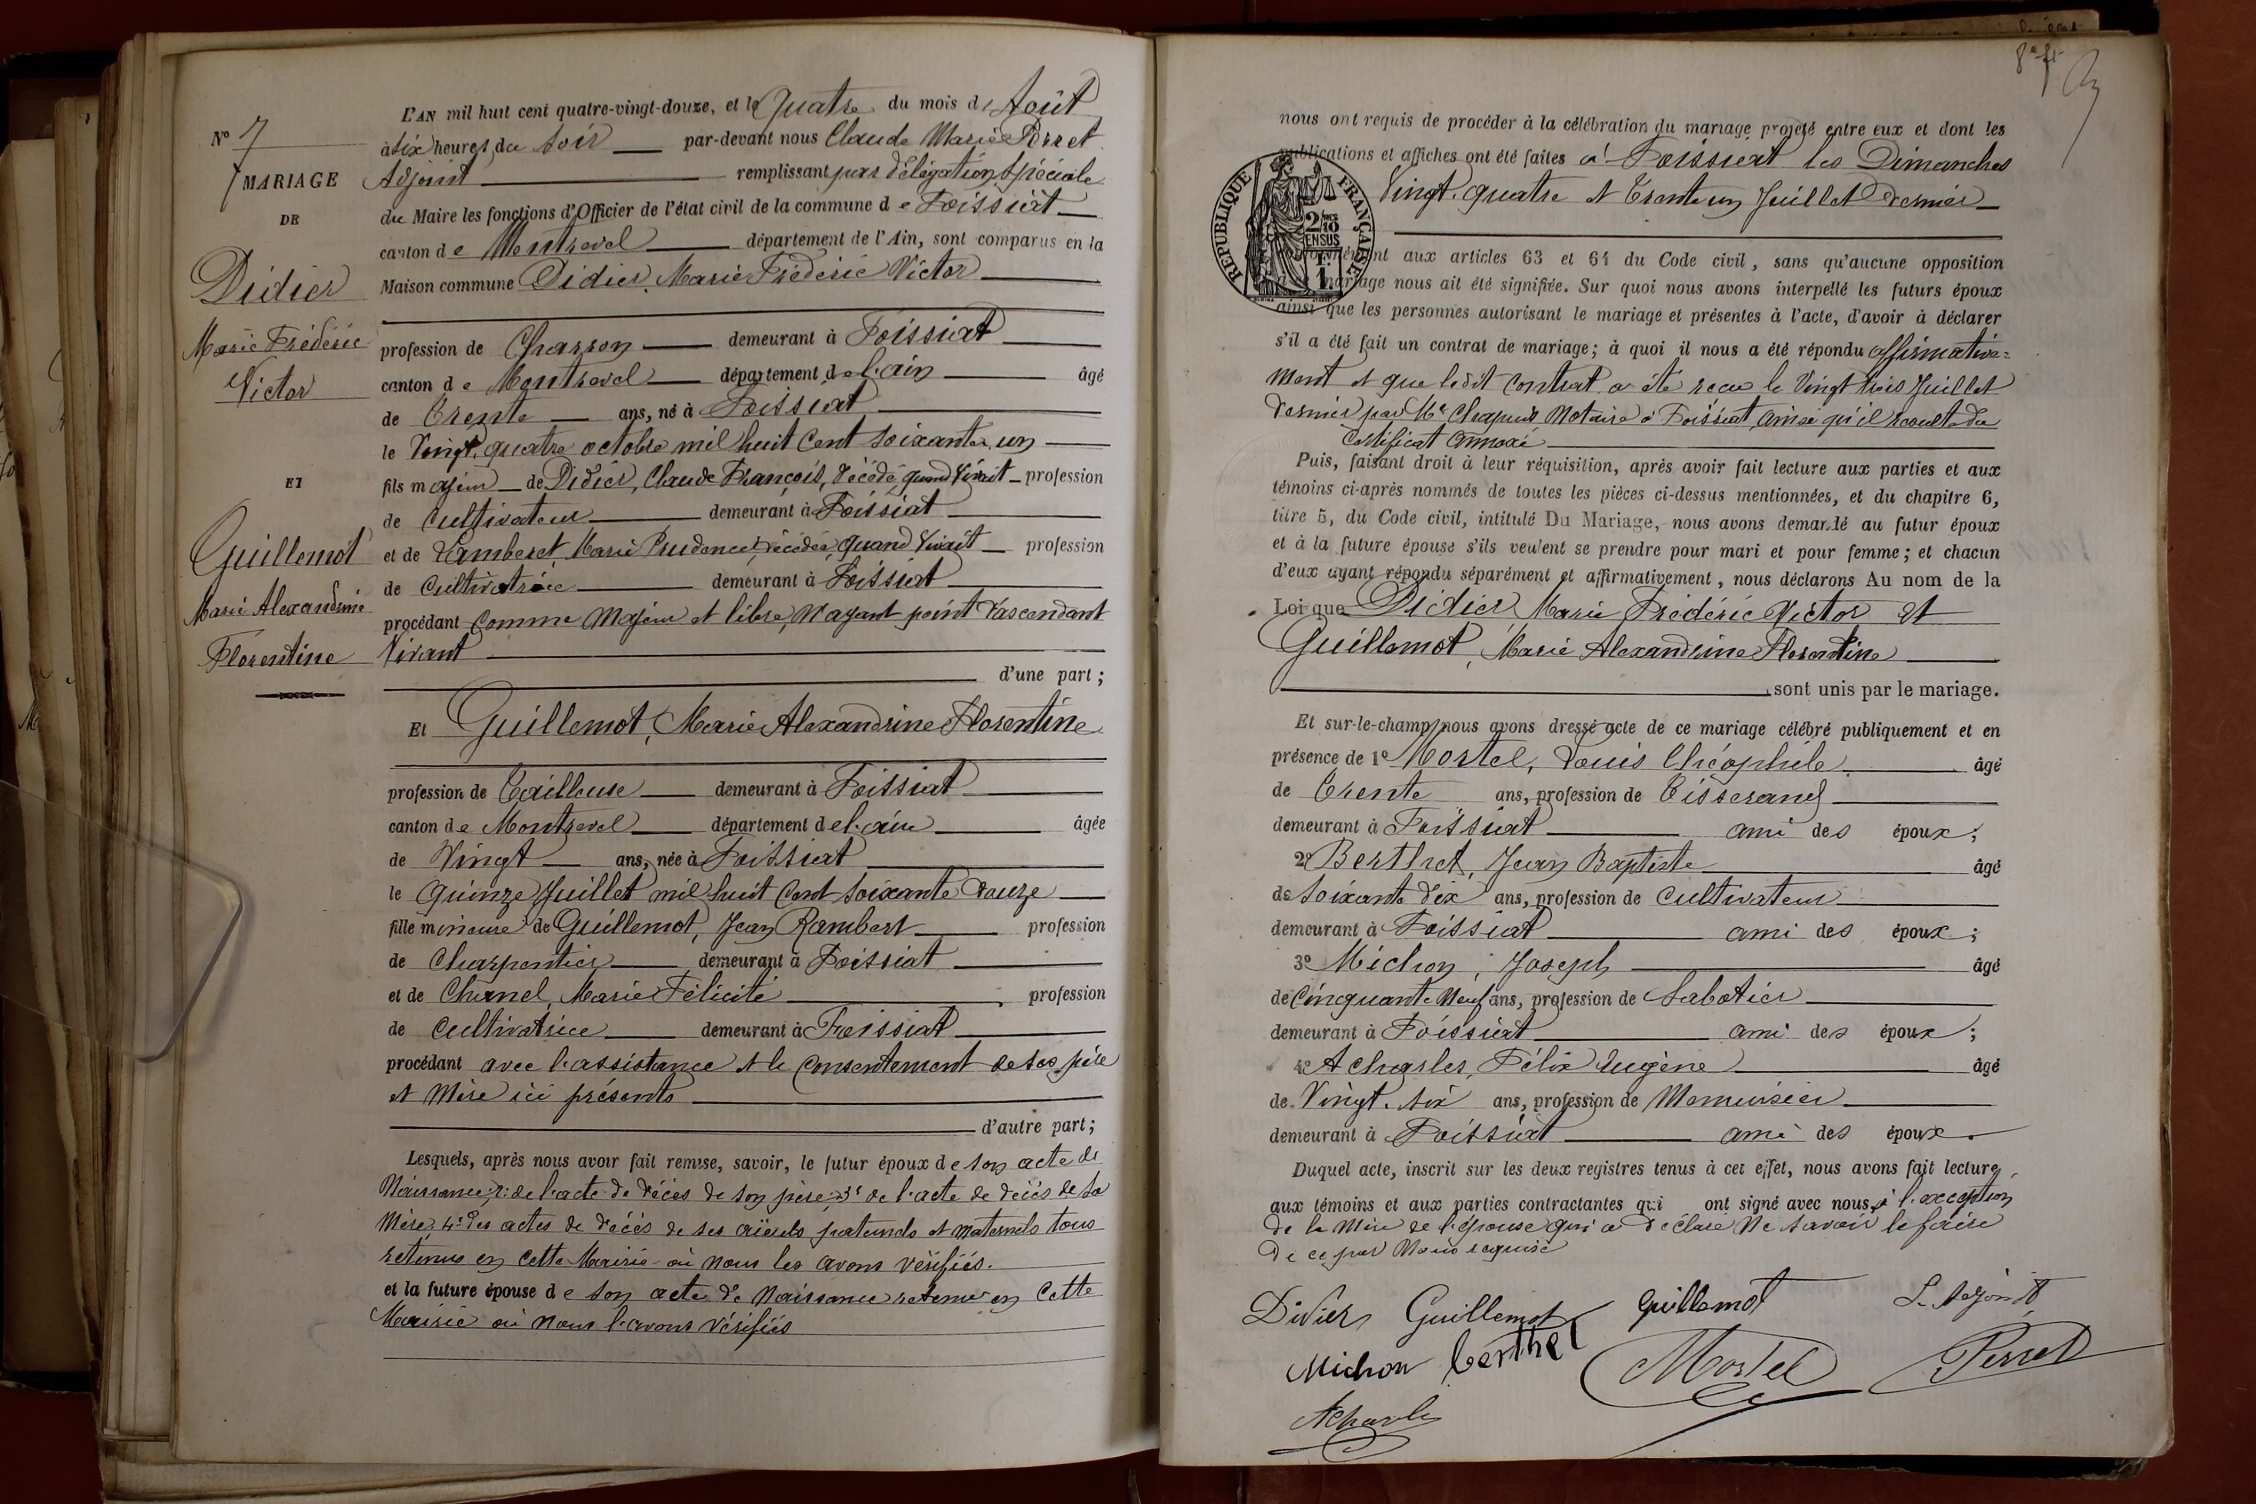 N° 7
MARIAGE
DE
Didier
Marie Frédéric
Victor
ET
Guillemot
Marie Alexandrine
Florentine
L'AN mil huit cent quatre-vingt-douze, et le Quatre du mois d'Août
à six heures du soir par-devant nous Claude Marie Perret
Adjoint remplissant par délégation spéciale
du Maire les fonctions d'Officier de l'état civil de la commune de Foissiat
canton de Montrevel département de l'Ain, sont comparus en la
Maison commune Didier, Marie Frédéric Victor
profession de Charron demeurant à Foissiat
canton de Montrevel département de l'ain âgé
de Trente ans, né à Foissiat
le Vingt quatre octobre mil huit cent soixante un
fils majeur de Didier, Claude François, décédé, quand vivait profession
de Cultivateur demeurant à Foissiat
et de Lamberet, Marie Prudence, décédée, quand vivait profession
de Cultivatrice demeurant à Foissiat
procédant comme Majeur et libre, n'ayant point d'ascendant
Vivant
d'une part ;
Et Guillemot, Marie Alexandrine Florentine
profession de Tailleuse demeurant à Foissiat
canton de Montrevel département de l'ain âgée
de Vingt ans, née à Foissiat
le Quinze Juillet mil huit Cent soixante douze
fille mineure de Guillemot, Jean Rambert profession
de Charpentier demeurant à Foissiat
et de Charnel, Marie Félicité profession
de Cultivatrice demeurant à Foissiat
procédant avec l'assistance et le Consentement de ses père
et Mère ici présents
d'autre part ;
Lesquels, après nous avoir fait remise, savoir, le futur époux de son acte de
Naissance, 2° de l'acte de décès de son père, 3° de l'acte de décès de sa
Mère, 4° des actes de décès de ses aïeuls paternels et maternels tous
retenus en cette Mairie où nous les avons vérifiés.
et la future épouse de son acte de Naissance retenu en Cette
Mairie où nous l'avons vérifiés
nous ont requis de procéder à la célébration du mariage projeté entre eux et dont les
publications et affiches ont été faites à Foissiat les Dimanches
Vingt-quatre et Trente un Juillet dernier
RÉPUBLIQUE FRANÇAISE
2/10 EN SUS
conformément aux articles 63 et 64 du Code civil, sans qu'aucune opposition
mariage nous ait été signifiée. Sur quoi nous avons interpellé les futurs époux
ainsi que les personnes autorisant le mariage et présentes à l'acte, d'avoir à déclarer
s'il a été fait un contrat de mariage ; à quoi il nous a été répondu affirmative=
ment et que ledit Contrat a été recu le Vingt trois Juillet
dernier par Me Chapuis Notaire à Foissiat, ainsi qu'il résulte du
Certificat annexé
Puis, faisant droit à leur réquisition, après avoir fait lecture aux parties et aux
témoins ci-après nommés de toutes les pièces ci-dessus mentionnées, et du chapitre 6,
titre 5, du Code civil, intitulé Du Mariage, nous avons demandé au futur époux
et à la future épouse s'ils veulent se prendre pour mari et pour femme ; et chacun
d'eux ayant répondu séparément et affirmativement, nous déclarons Au nom de la
Loi que Didier Marie Frédéric Victor et
Guillemot, Marie Alexandrine Florentine
sont unis par le mariage.
Et sur-le-champ nous avons dressé acte de ce mariage célébré publiquement et en
présence de 1° Mortel, Louis Théophile âgé
de Trente ans, profession de Tisserand
demeurant à Foissiat ami des époux ;
2° Berthet, Jean Baptiste âgé
de soixante dix ans, profession de Cultivateur
demeurant à Foissiat ami des époux ;
3° Michon, Joseph âgé
de Cinquante Neuf ans, profession de Sabotier
demeurant à Foissiat ami des époux ;
4° Acharles, Félix Eugène âgé
de Vingt-six ans, profession de Menuisier
demeurant à Foissiat ami des époux.
Duquel acte, inscrit sur les deux registres tenus à cet effet, nous avons fait lecture
aux témoins et aux parties contractantes qui ont signé avec nous, à l'exception
de la Mère de l'épouse qui a déclaré Ne savoir le faire
de ce par Nous requise
Didier Guillemot Guillemot L'Adjoint
Michon Berthet Mortel Perret
Acharles